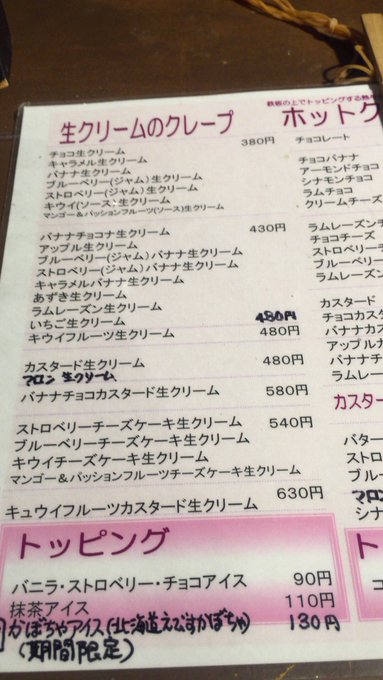 生クリームのクレープ
チョコ生クリーム 380円
キャラメル生クリーム
バナナ生クリーム
ブルーベリー(ジャム)生クリーム
ストロベリー(ジャム)生クリーム
キウイ(ソース)生クリーム
マンゴー&パッションフルーツ(ソース)生クリーム
バナナチョコナ生クリーム 430円
アップル生クリーム
ブルーベリー(ジャム)バナナ生クリーム
ストロベリー(ジャム)バナナ生クリーム
キャラメルバナナ生クリーム
あずき生クリーム
ラムレーズン生クリーム
いちご生クリーム 480円
キウイフルーツ生クリーム 480円
カスタード生クリーム 480円
マロン生クリーム
バナナチョコカスタード生クリーム 580円
ストロベリーチーズケーキ生クリーム 540円
ブルーベリーチーズケーキ生クリーム
キウイチーズケーキ生クリーム
マンゴー&パッションフルーツチーズケーキ生クリーム
キュウイフルーツカスタード生クリーム 630円
トッピング
バニラ・ストロベリー・チョコアイス 90円
抹茶アイス 110円
かぼちゃアイス(北海道えびすかぼちゃ) 130円
(期間限定)
鉄板の上でトッピングする熱々
ホットク
チョコレート
チョコバナナ
アーモンドチョコ
シナモンチョコ
ラムチョコ
クリームチーズ
ラムレーズンチ
チョコチーズ
ストロベリーチ
ブルーベリー
ラムレーズン
カスタード
チョコカスタ
バナナカス
アップルカ
バナナチョ
ラムレー
カスター
バター
ストロ
ブルー
マロン
シナ
ト
コ